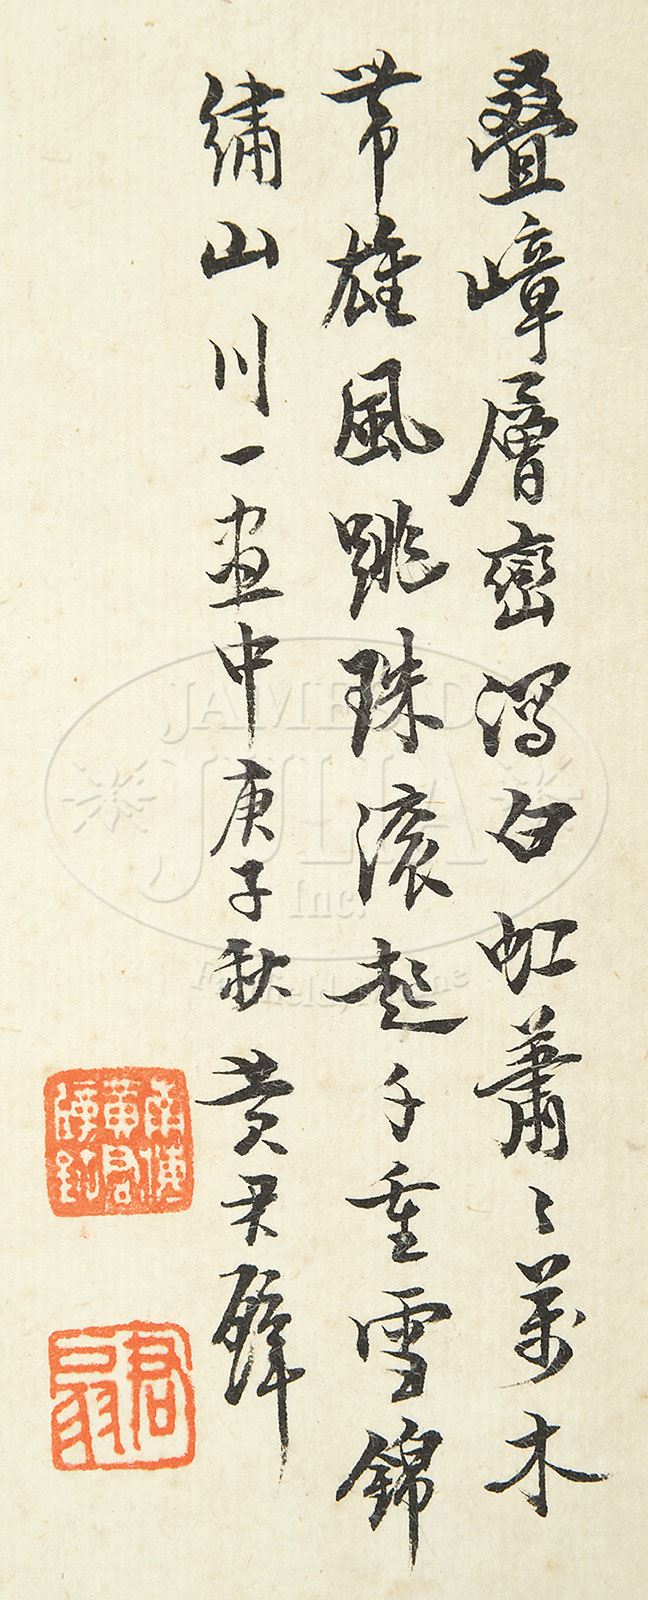 叠嶂層巒瀉白虹蕭〻萬木
帶雄風跳珠滾起千重雪錦
繡山川一畫中庚子秋 黃君璧
君翁
JAMES D.
JULIA
Inc.
Fairfield, Maine